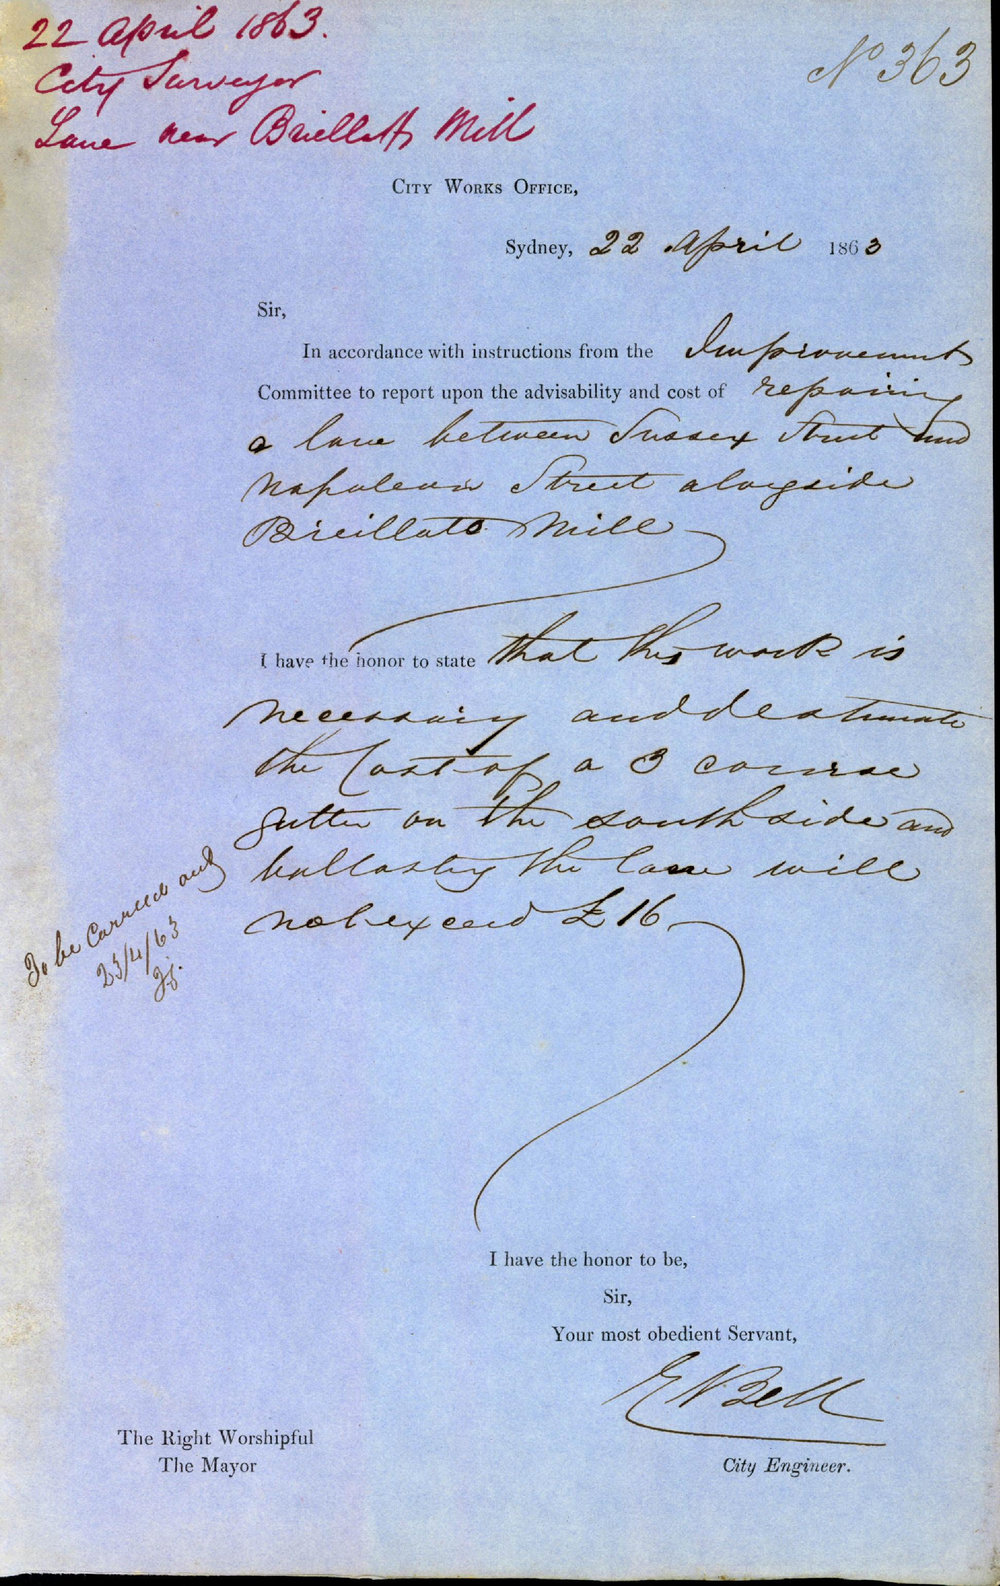 22 April 1863.
City Surveyor
Lane near Briellatts Mill
No 363
City Works Office,
Sydney, 22 April 1863
Sir,
In accordance with instructions from the Improvement
Committee to report upon the advisability and cost of repairing
a lane between Sussex Street and
Napoleon Street alongside
Breillats Mill
I have the honor to state that this work is
necessary and I estimate
the Cost of a 3 course
gutter on the south side and
ballasting the lane will
not exceed £16
To be Carried out
23/4/63
I have the honor to be,
Sir,
Your most obedient Servant,
E Bell
City Engineer.
The Right Worshipful
The Mayor